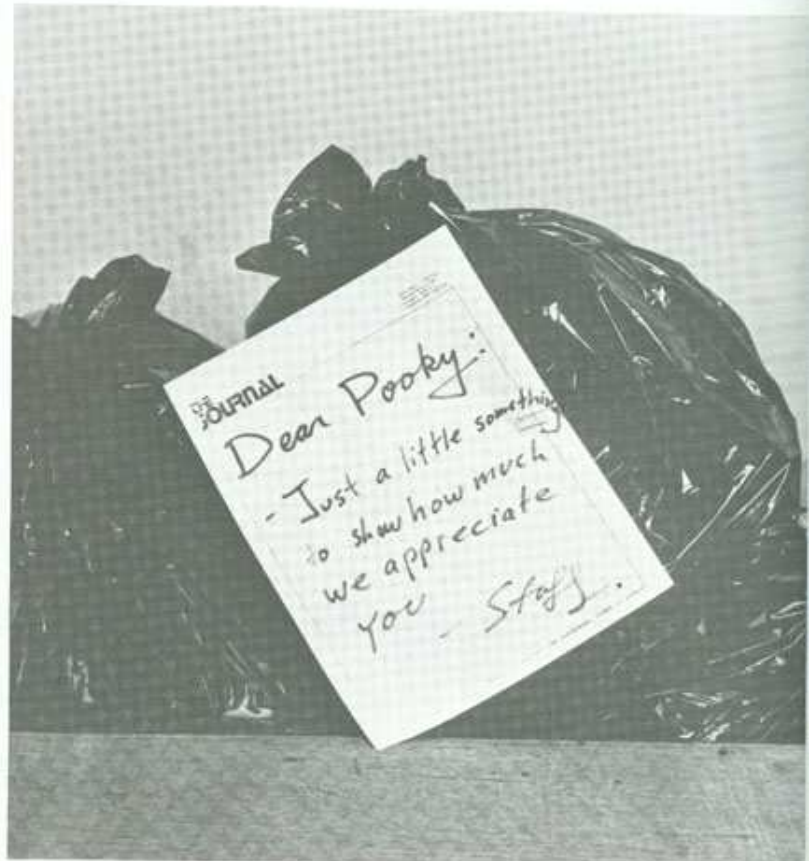 THE
JOURNAL
Dear Pooky:
- Just a little something
to show how much
we appreciate
you
- Staff.